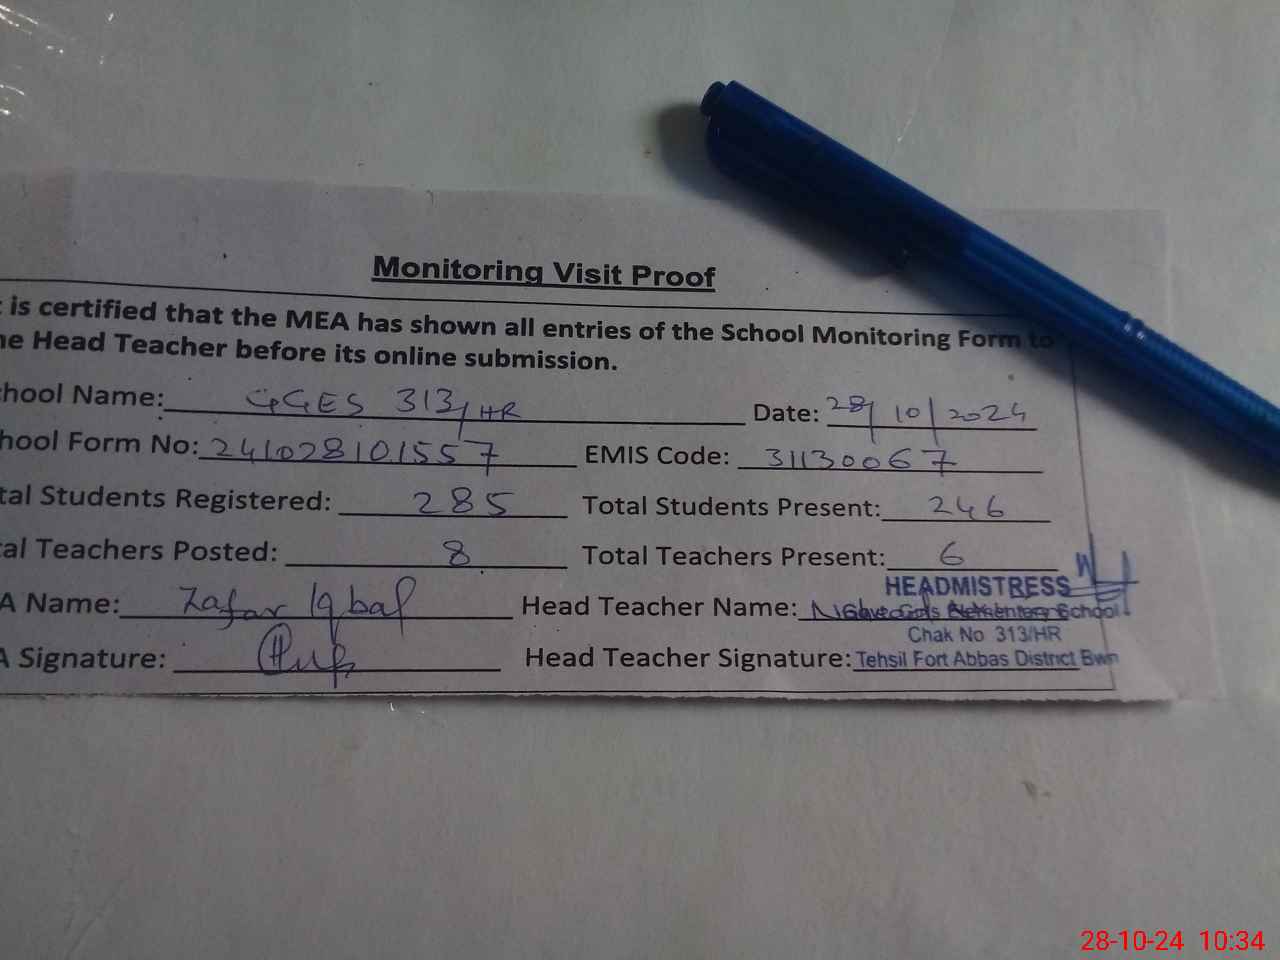 Monitoring Visit Proof
is certified that the MEA has shown all entries of the School Monitoring Form to
he Head Teacher before its online submission.
hool Name: GGES 313/HR Date: 28/10/2024
hool Form No: 241028101557 EMIS Code: 31130067
tal Students Registered: 285 Total Students Present: 246
tal Teachers Posted: 8 Total Teachers Present: 6
HEADMISTRESS
A Name: Zafar Iqbal Head Teacher Name: Girls Elementary School
Chak No 313/HR
A Signature: Head Teacher Signature: Tehsil Fort Abbas District Bwn
28-10-24 10:34